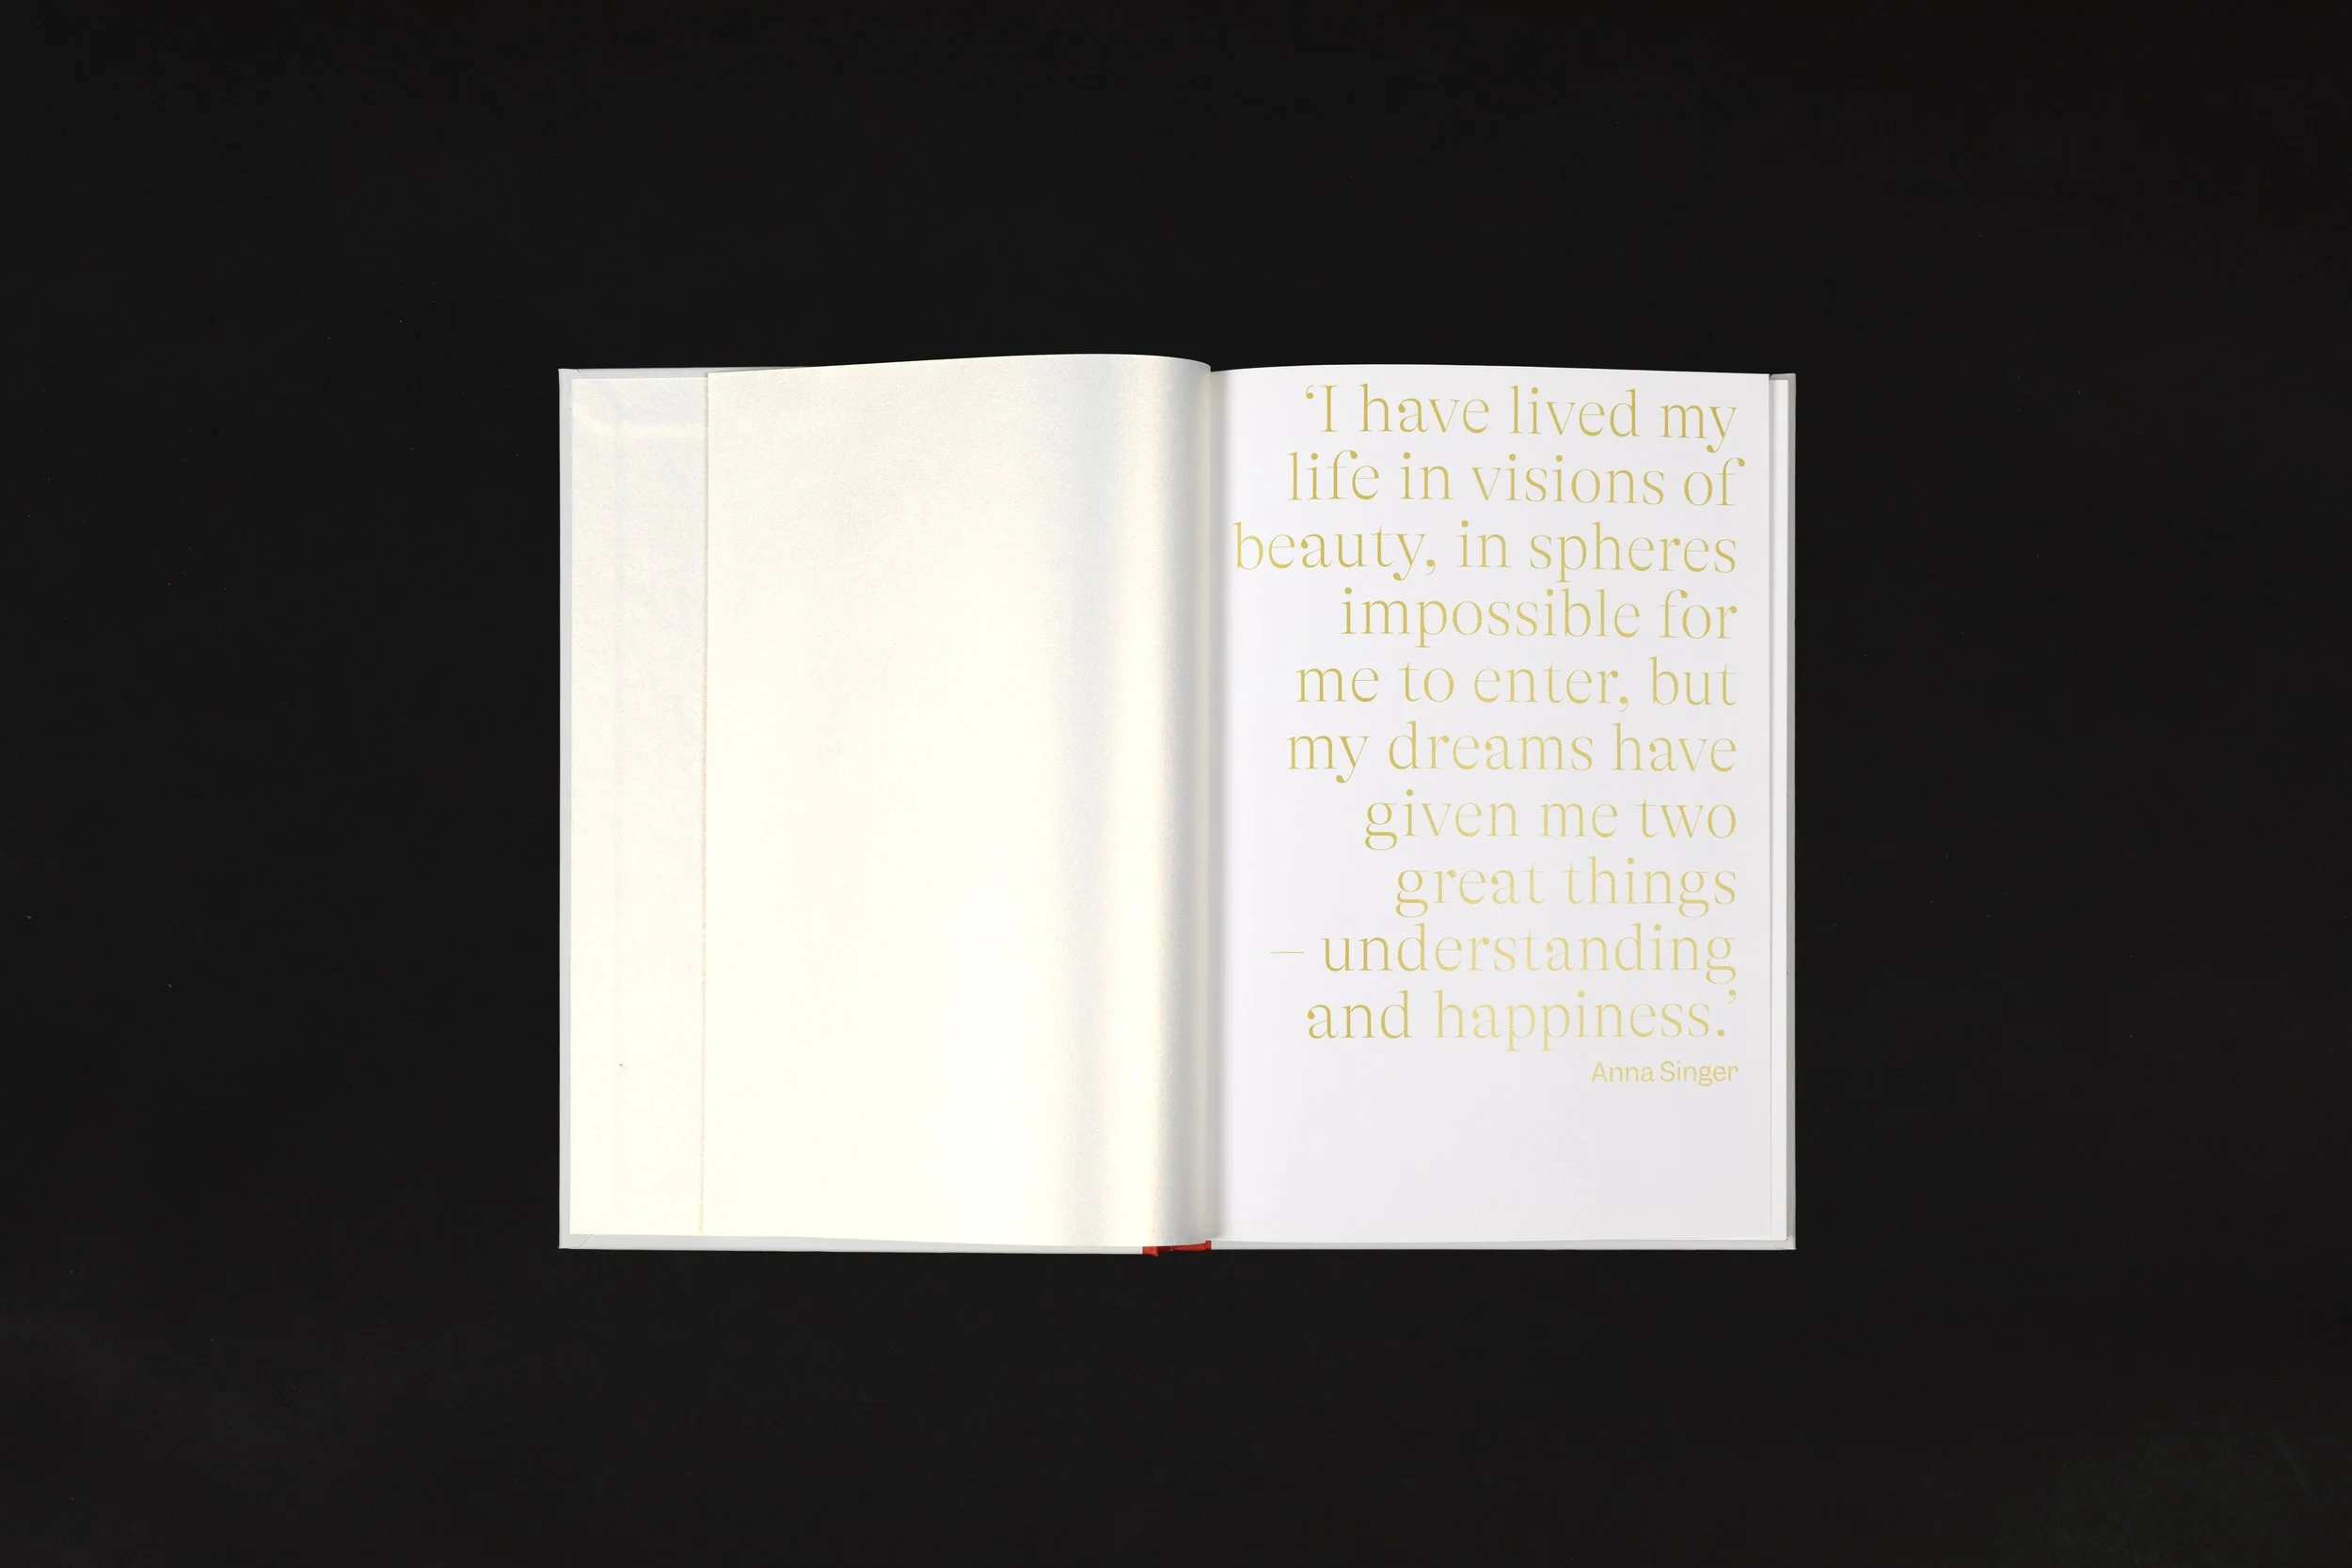 ‘I have lived my
life in visions of
beauty, in spheres
impossible for
me to enter, but
my dreams have
given me two
great things
– understanding
and happiness.’
Anna Singer